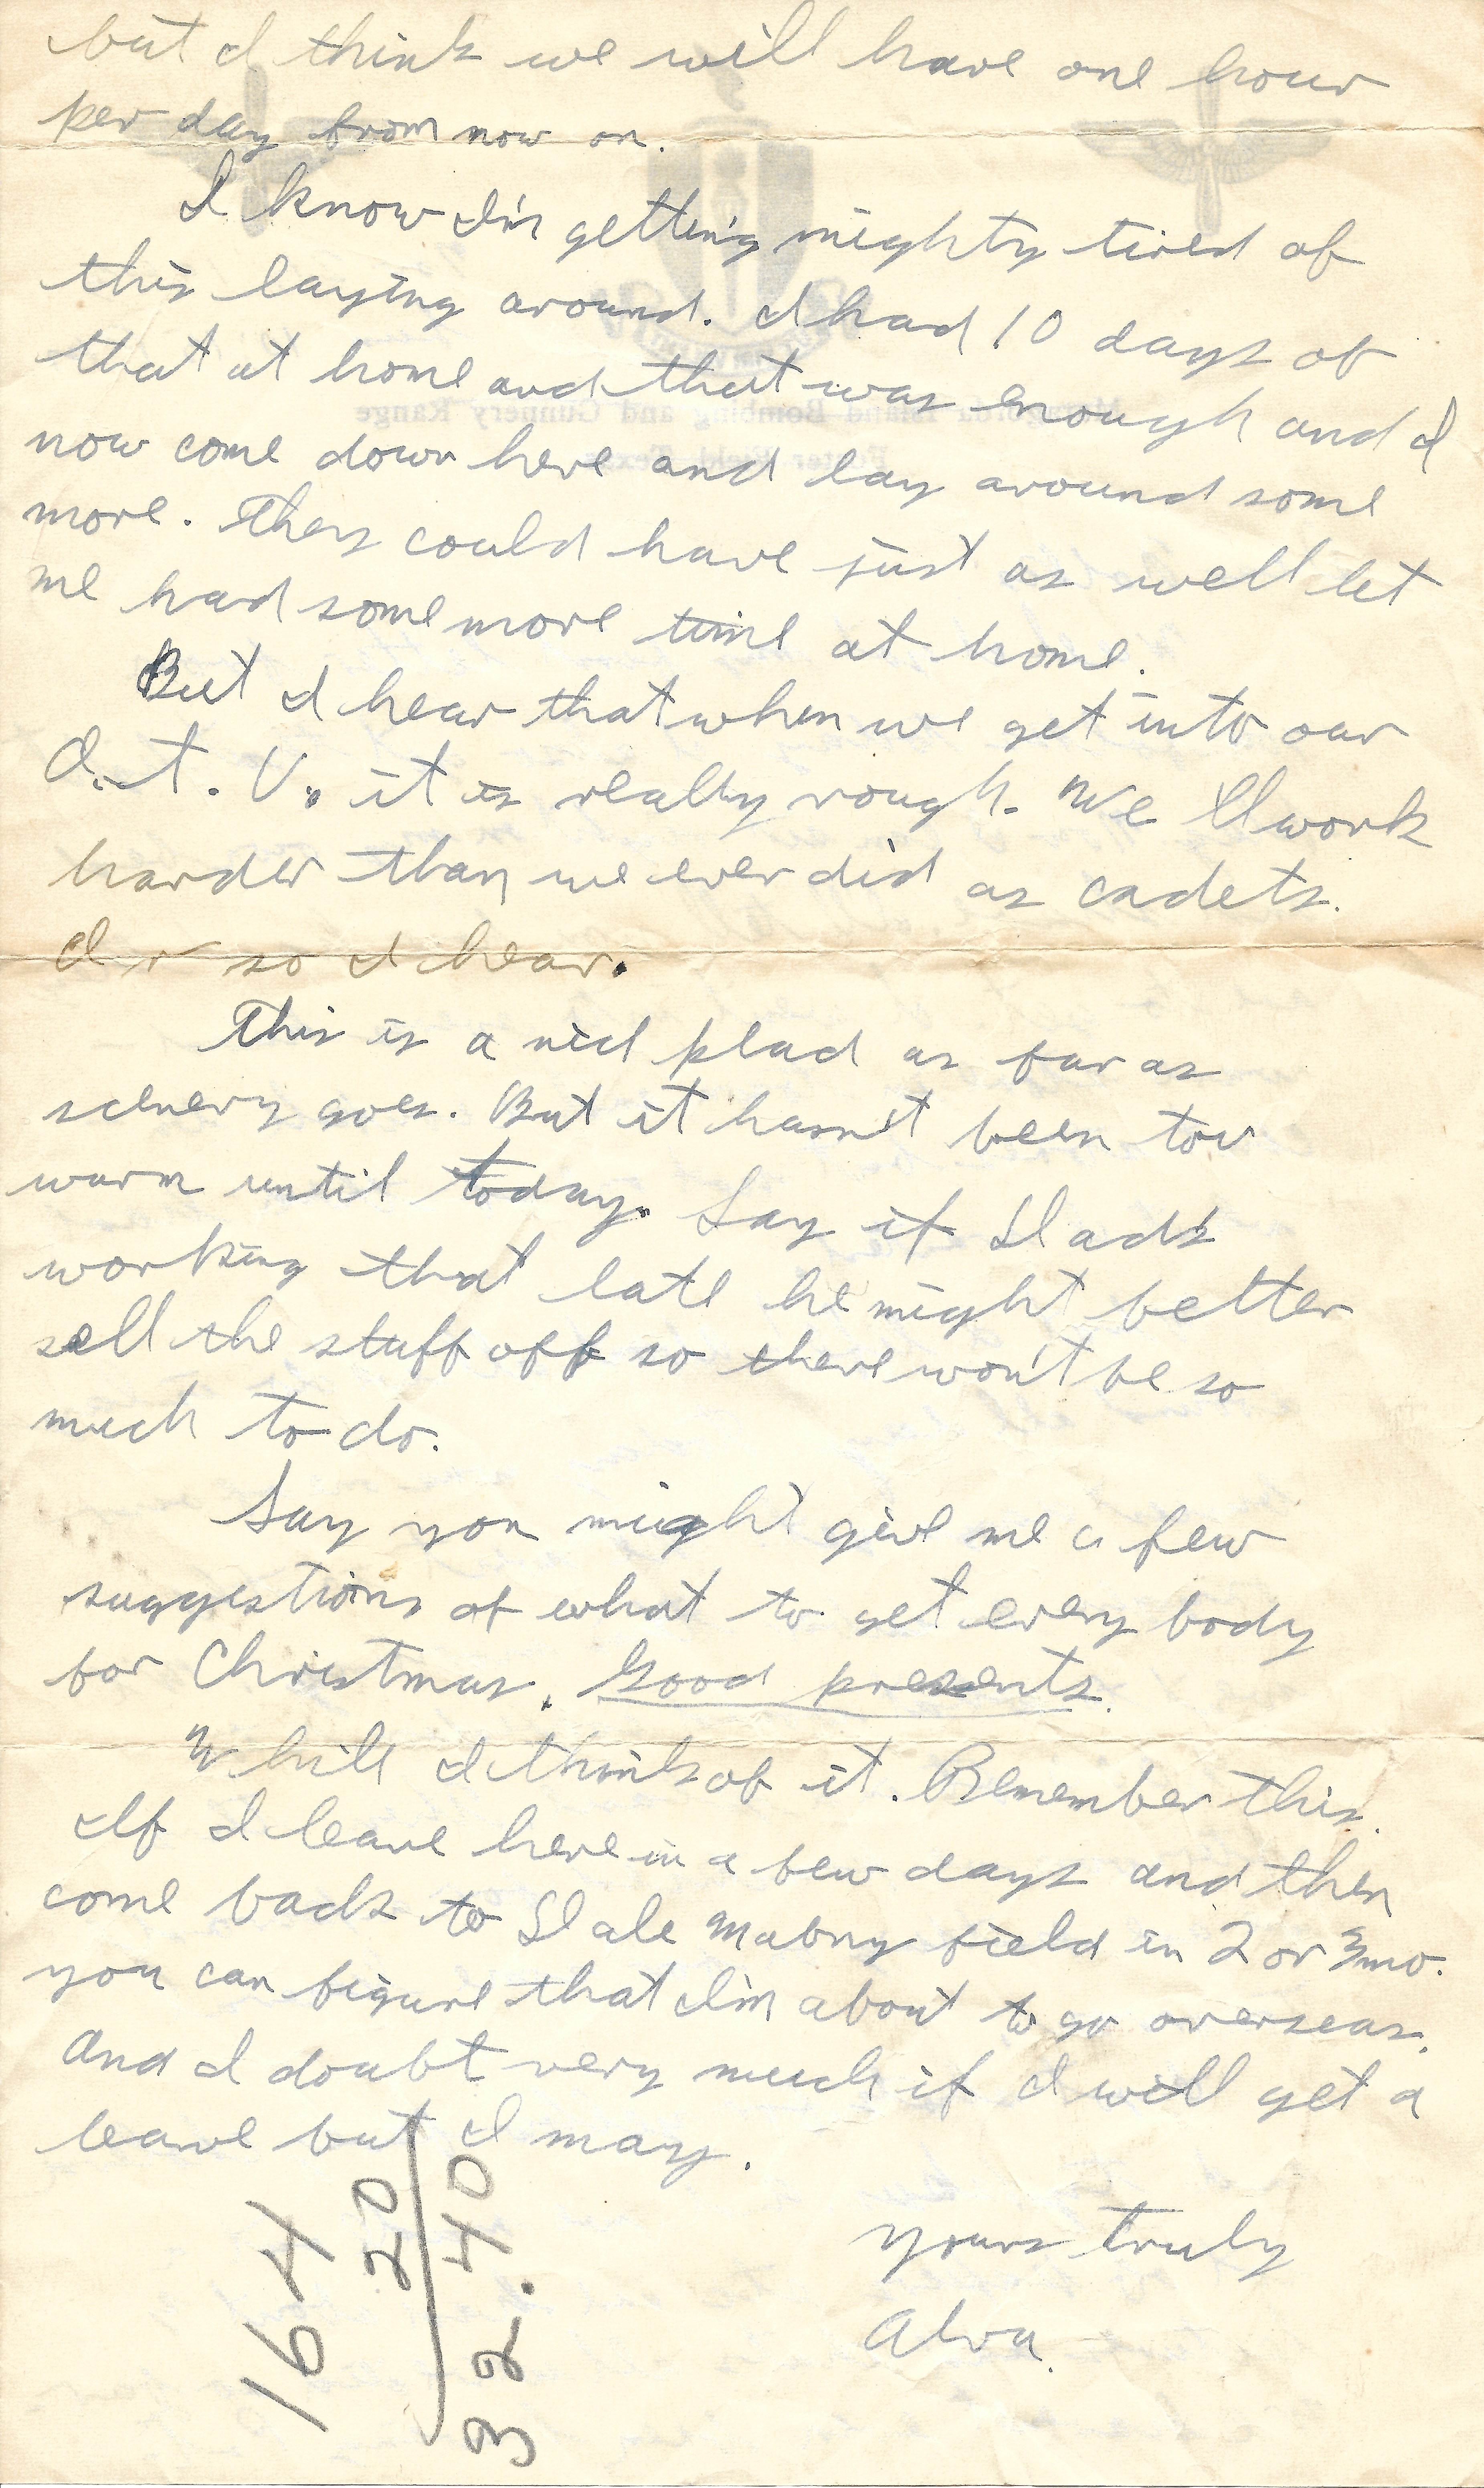 but I think we will have one hour
per day from now on.
I know I'm getting mighty tired of
this laying around. I had 10 days of
that at home and that was enough and I
now come down here and lay around some
more. They could have just as well let
me had some more time at home.
But I hear that when we get into our
O.T.U. it is really rough. We'll work
harder than we ever did as cadets.
Or so I hear.
This is a nice place as far as
scenery goes. But it hasn't been too
warm until today. Say if Dads
working that late he might better
sell the stuff off so there won't be so
much to do.
Say you might give me a few
suggestions of what to get every body
for Christmas. Good presents.
While I think of it. Remember this.
If I leave here in a few days and then
come back to Dale Mabry field in 2 or 3 mo.
you can figure that I'm about to go overseas.
And I doubt very much if I will get a
leave but I may.
Yours truly
Alva.
164
20
32.40
Matagorda Island Bombing and Gunnery Range
Foster Field, Texas